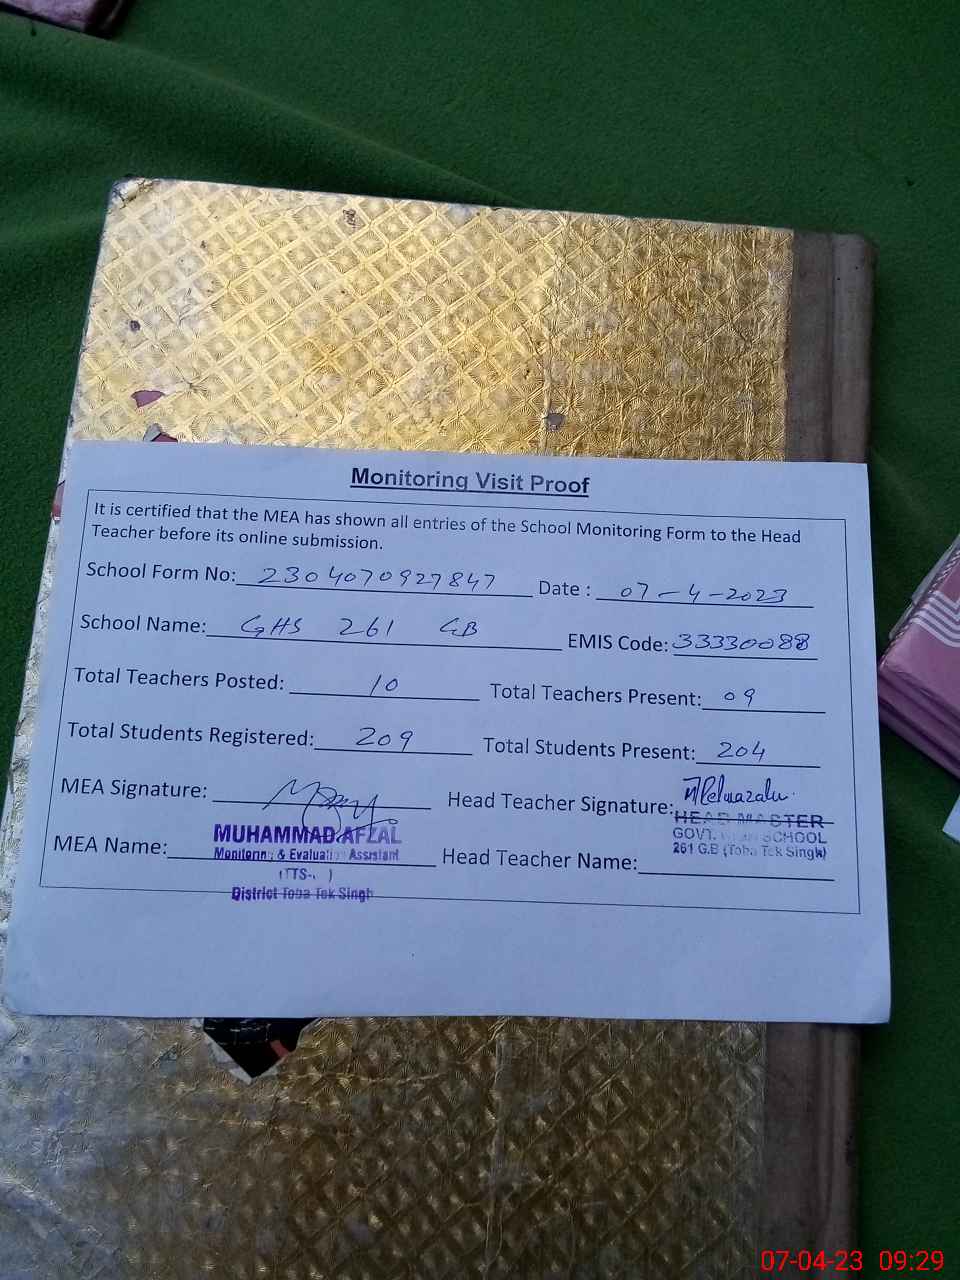 Monitoring Visit Proof
It is certified that the MEA has shown all entries of the School Monitoring Form to the Head
Teacher before its online submission.
School Form No: 2304070927847 Date : 07-4-2023
School Name: GHS 261 GB EMIS Code: 33330088
Total Teachers Posted: 10 Total Teachers Present: 09
Total Students Registered: 209 Total Students Present: 204
MEA Signature: Head Teacher Signature:
HEAD MASTER
MUHAMMAD AFZAL GOVT. SCHOOL
MEA Name: Monitoring & Evaluation Assistant Head Teacher Name: 261 G.B (Toba Tek Singh)
District Toba Tek Singh
07-04-23 09:29